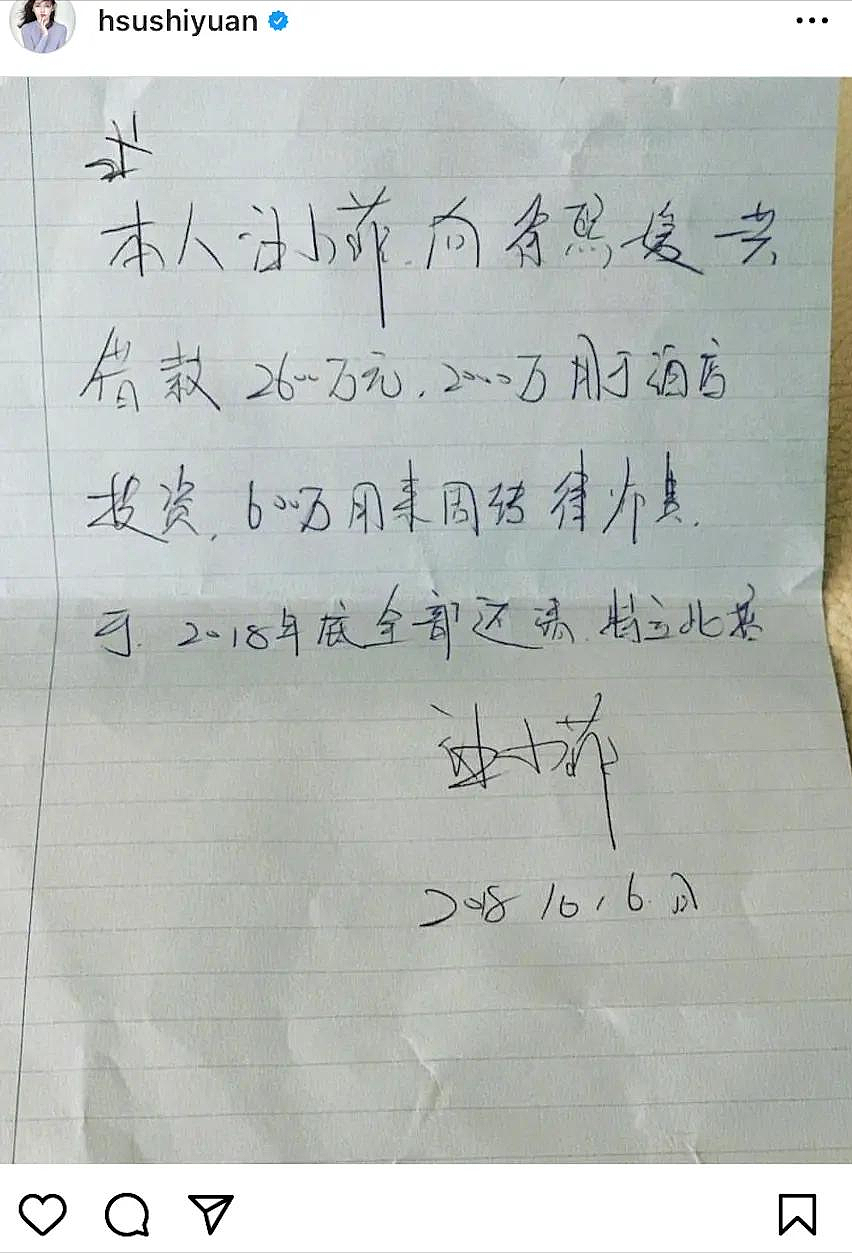 hsushiyuan
本人汪小菲.向徐熙媛共
借款2600万元.2000万用于酒店
投资,600万用来周转律师费.
于.2018年底全部还清.特立此
汪小菲
2018 10,6.